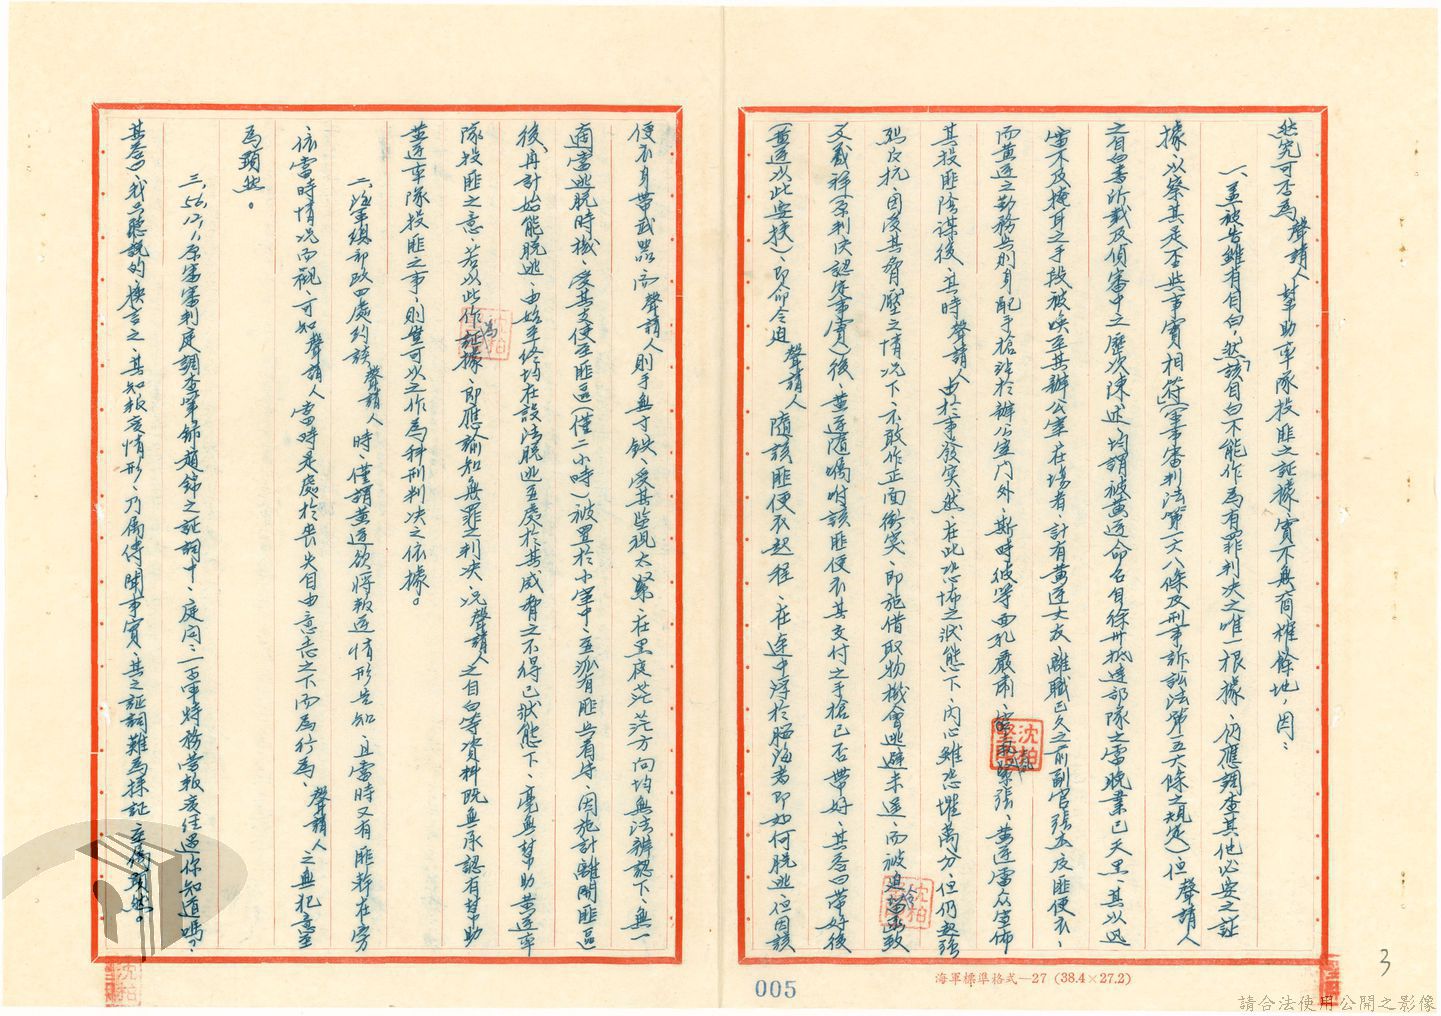 然究可否為聲請人幫助率隊投匪之証據,實不無商榷餘地,因:
一、並被告雖有自白,然該自白不能作為有罪判決之唯一根據,仍應調查其他必要之証
據,以察其是否與事實相符(軍事審判法第一六八條及刑事訴訟法第一五六條之規定)但聲請人
之自白書所載及偵審中之歷次陳述,均謂被黃逆命名自徐州抵達部隊之當晚業已天黑,其以迅
雷不及掩耳之手段被喚至其辦公室在場者,計有黃逆女友、離職已久之前副官張丕及匪便衣,
而黃逆之勤務兵則身配手槍於辦公室內外,斯時彼等面孔嚴肅,緊張,黃逆當众宣佈
其投匪陰謀後,其時聲請人由於事發突然在此恐怖之狀態下,內心雖恐懼萬分,但仍趨強
烈反抗,因受其脅壓之情況下,不敢作正面衝突,即施借取物機會逃避未遂,而被迫
又載詳(原判決認定事實)後,黃逆隨囑咐該匪便衣其交付之手槍已否帶好,其答曰帶好後
(黃逆以此要挾),即命令迫聲請人隨該匪便衣起程,在途中浮於腦海者即如何脫逃,但因該
便衣身帶武器,而聲請人則手無寸鐵,受其監視太緊,在黑夜茫茫方向均無法辦認下,無一
適當逃脫時機,受其支使至匪區(僅二小時)被置於小室中,並派有匪兵看守,因施計離開匪區
後,再計始能脫逃,由始至終均在設法脫逃並處於其威脅之不得已狀態下,毫無幫助黃逆率
隊投匪之意,若以此作為証據,即應諭知無罪之判決,況聲請人之自白等資料既無承認有幫助
黃逆率隊投匪之事,則豈可以之作為科刑判決之依據。
二、海軍總部政四處約談聲請人時,僅謂黃逆欲將叛逆情形告知,且當時又有匪幹在旁
依當時情況而觀,可知聲請人當時是處於喪失自由意志之下而為行為,聲請人之無犯意至
為顯然。
三、56.12.1.原審審判庭調查軍飾趙錦之証詞中,庭問:「百軍特務營叛變經過你知道嗎?」
其答:「我是聽說的」換言之,其知叛變情形,乃屬傳聞事實,其之証詞難為採証,至為顯然。
海軍標準格式—27 (38.4×27.2)
005
3
請合法使用公開之影像